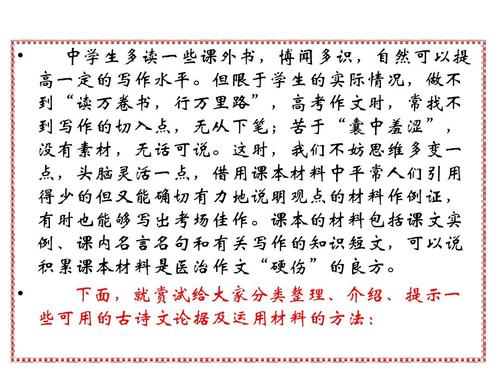 中学生多读一些课外书，博闻多识，自然可以提
高一定的写作水平。但限于学生的实际情况，做不
到“读万卷书，行万里路”，高考作文时，常找不
到写作的切入点，无从下笔；苦于“囊中羞涩”，
没有素材，无话可说。这时，我们不妨思维多变一
点，头脑灵活一点，借用课本材料中平常人们引用
得少的但又能确切有力地说明观点的材料作例证，
有时也能够写出考场佳作。课本的材料包括课文实
例、课内名言名句和有关写作的知识短文，可以说
积累课本材料是医治作文“硬伤”的良方。
下面，就尝试给大家分类整理、介绍、提示一
些可用的古诗文论据及运用材料的方法：